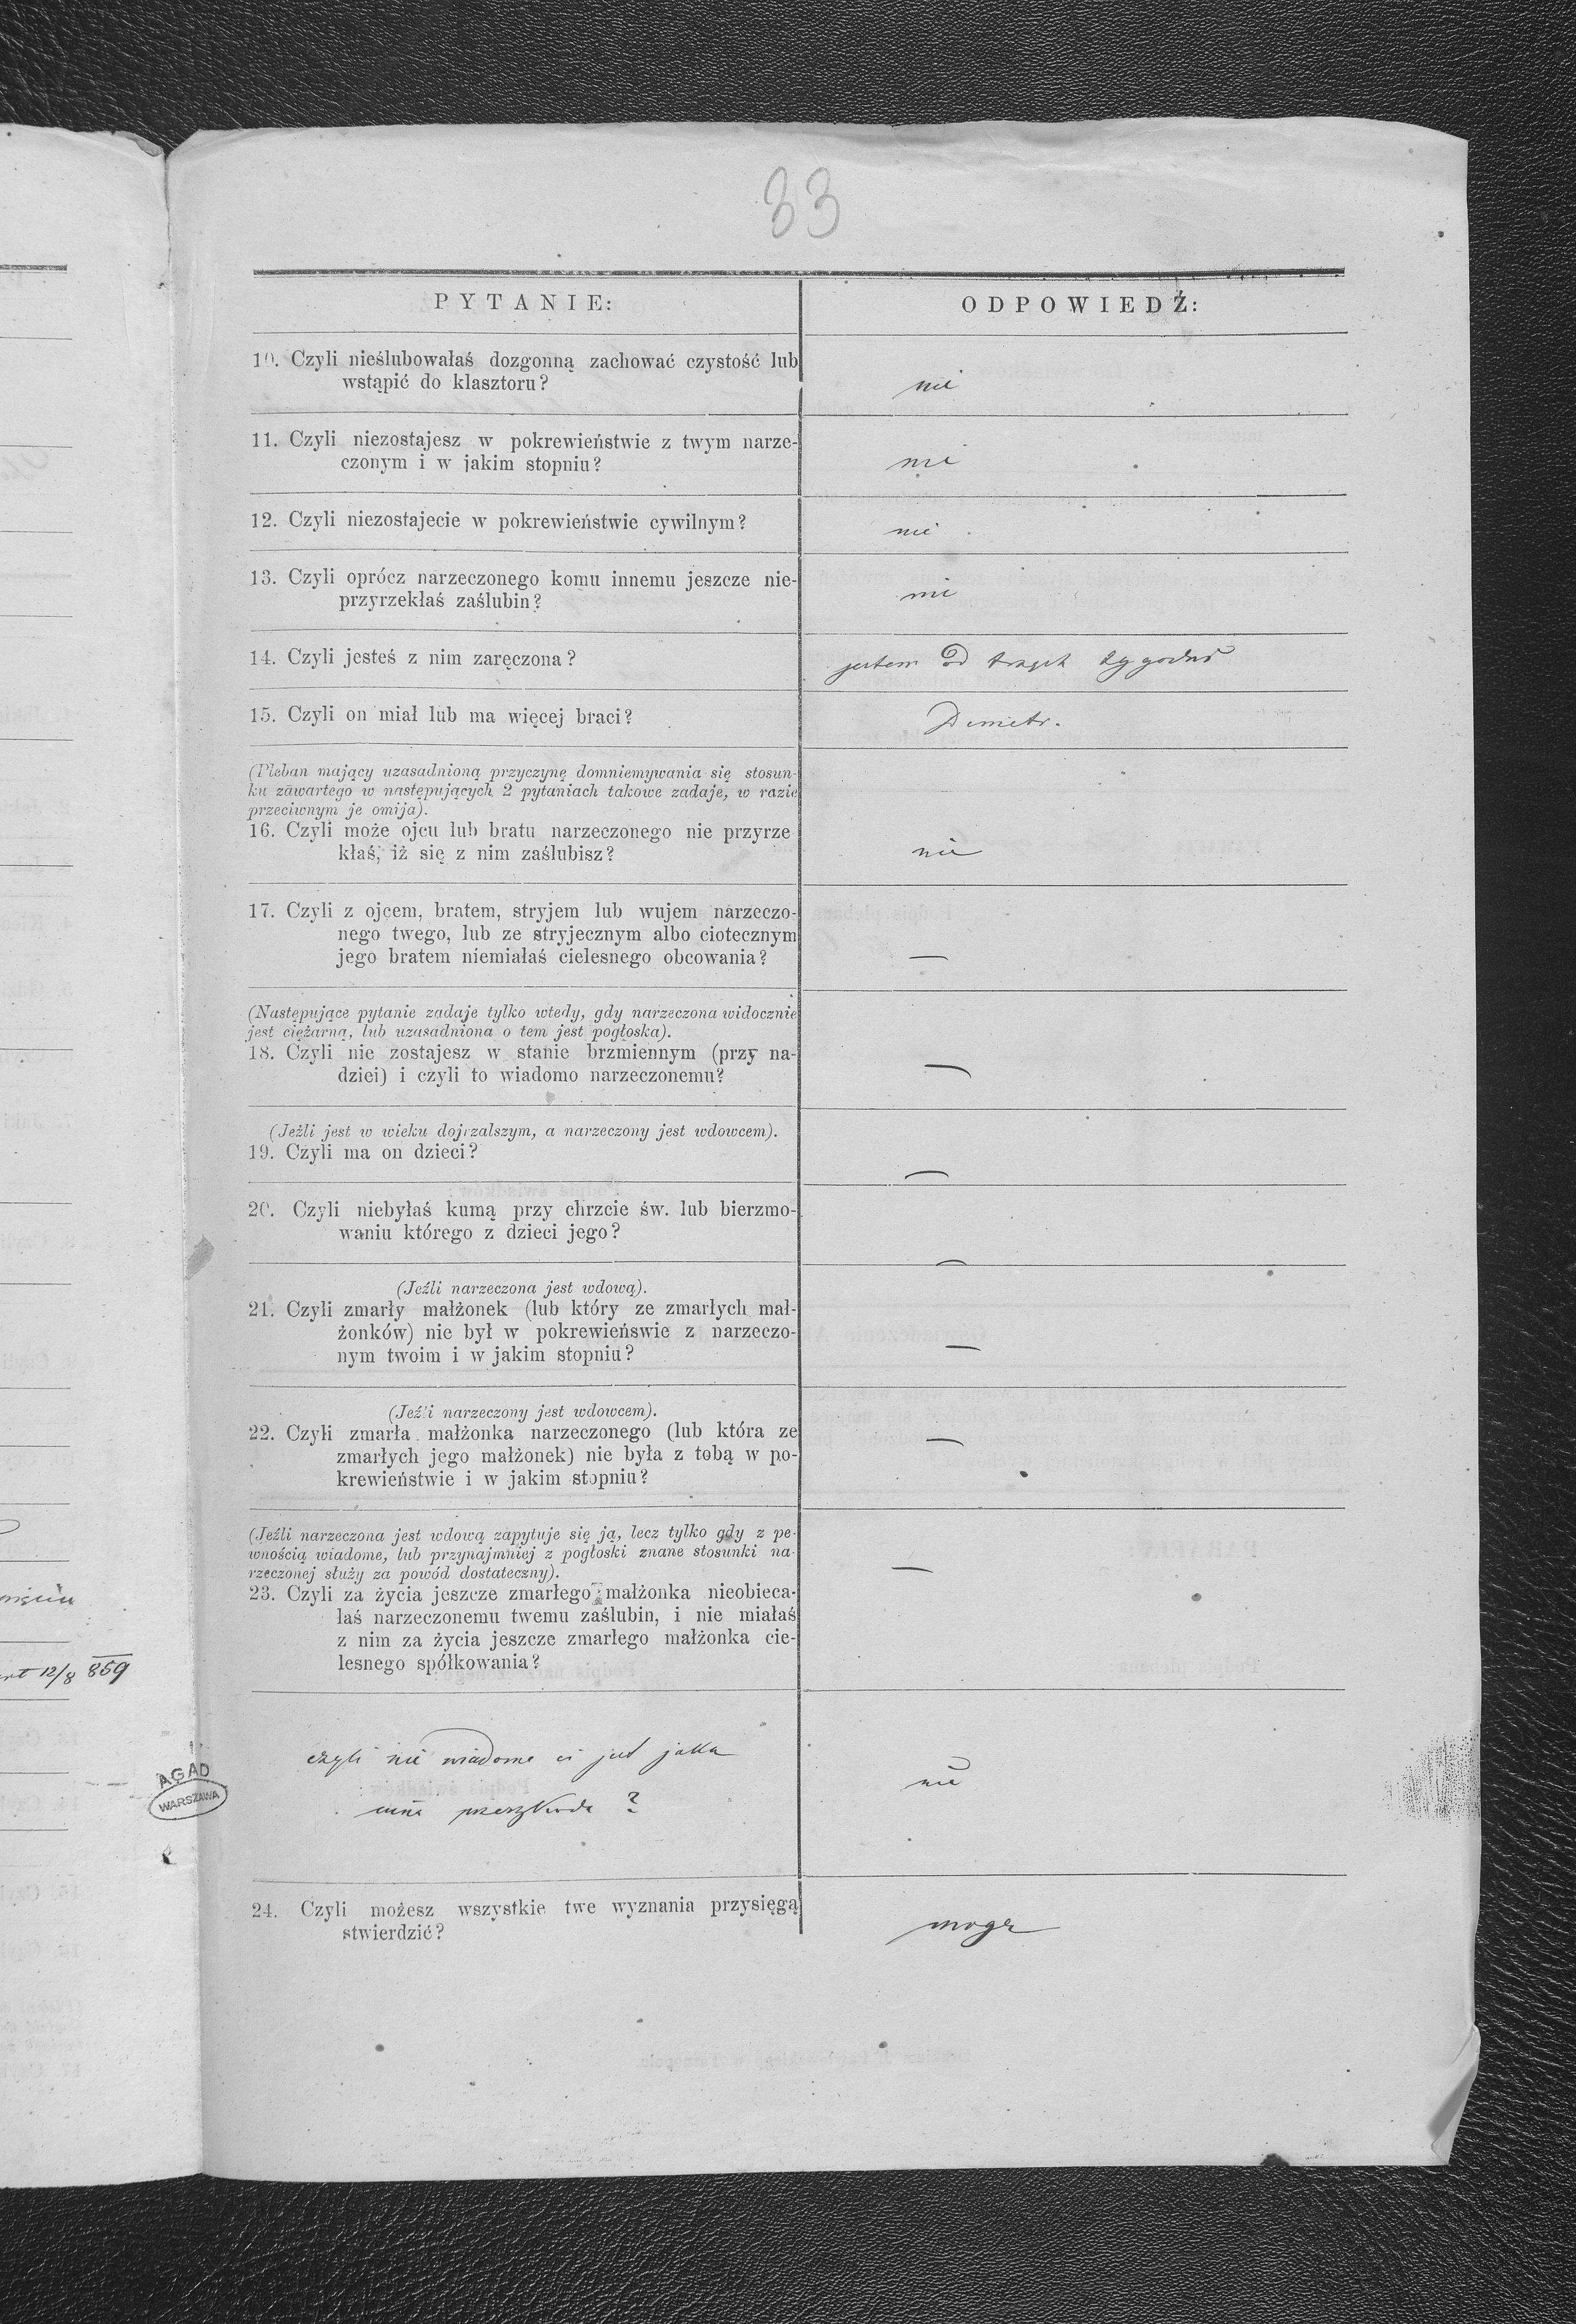 33
PYTANIE:
ODPOWIEDŹ:
10. Czyli nieślubowałaś dozgonną zachować czystość lub
wstąpić do klasztoru?
nie
11. Czyli niezostajesz w pokrewieństwie z twym narze-
czonym i w jakim stopniu?
nie
12. Czyli niezostajecie w pokrewieństwie cywilnym?
nie
13. Czyli oprócz narzeczonego komu innemu jeszcze nie-
przyrzekłaś zaślubin?
nie
14. Czyli jesteś z nim zaręczona?
jestem od trzech tygodni
15. Czyli on miał lub ma więcej braci?
Dimetr.
(Pleban mający uzasadnioną przyczynę domniemywania się stosun-
ku zawartego w następujących 2 pytaniach takowe zadaje, w razie
przeciwnym je omija).
16. Czyli może ojcu lub bratu narzeczonego nie przyrze
kłaś, iż się z nim zaślubisz?
nie
17. Czyli z ojcem, bratem, stryjem lub wujem narzeczo-
nego twego, lub ze stryjecznym albo ciotecznym
jego bratem niemiałaś cielesnego obcowania?
—
(Następujące pytanie zadaje tylko wtedy, gdy narzeczona widocznie
jest ciężarną, lub uzasadniona o tem jest pogłoska).
18. Czyli nie zostajesz w stanie brzmiennym (przy na-
dziei) i czyli to wiadomo narzeczonemu?
—
(Jeżli jest w wieku dojrzalszym, a narzeczony jest wdowcem).
19. Czyli ma on dzieci?
—
20. Czyli niebyłaś kumą przy chrzcie św. lub bierzmo-
waniu którego z dzieci jego?
—
(Jeźli narzeczona jest wdową).
21. Czyli zmarły małżonek (lub który ze zmarłych mał-
żonków) nie był w pokrewieńswie z narzeczo-
nym twoim i w jakim stopniu?
—
(Jeźli narzeczony jest wdowcem).
22. Czyli zmarła małżonka narzeczonego (lub która ze
zmarłych jego małżonek) nie była z tobą w po-
krewieństwie i w jakim stopniu?
—
(Jeźli narzeczona jest wdową zapytuje się ją, lecz tylko gdy z pe-
wnością wiadome, lub przynajmniej z pogłoski znane stosunki na-
rzeczonej służy za powód dostateczny).
23. Czyli za życia jeszcze zmarłego małżonka nieobieca-
łaś narzeczonemu twemu zaślubin, i nie miałaś
z nim za życia jeszcze zmarłego małżonka cie-
lesnego spółkowania?
—
12/8 859
czyli nie wiadome ci jest jaka
inna przeszkoda?
nie
AGAD
WARSZAWA
24. Czyli możesz wszystkie twe wyznania przysięgą
stwierdzić?
mogę